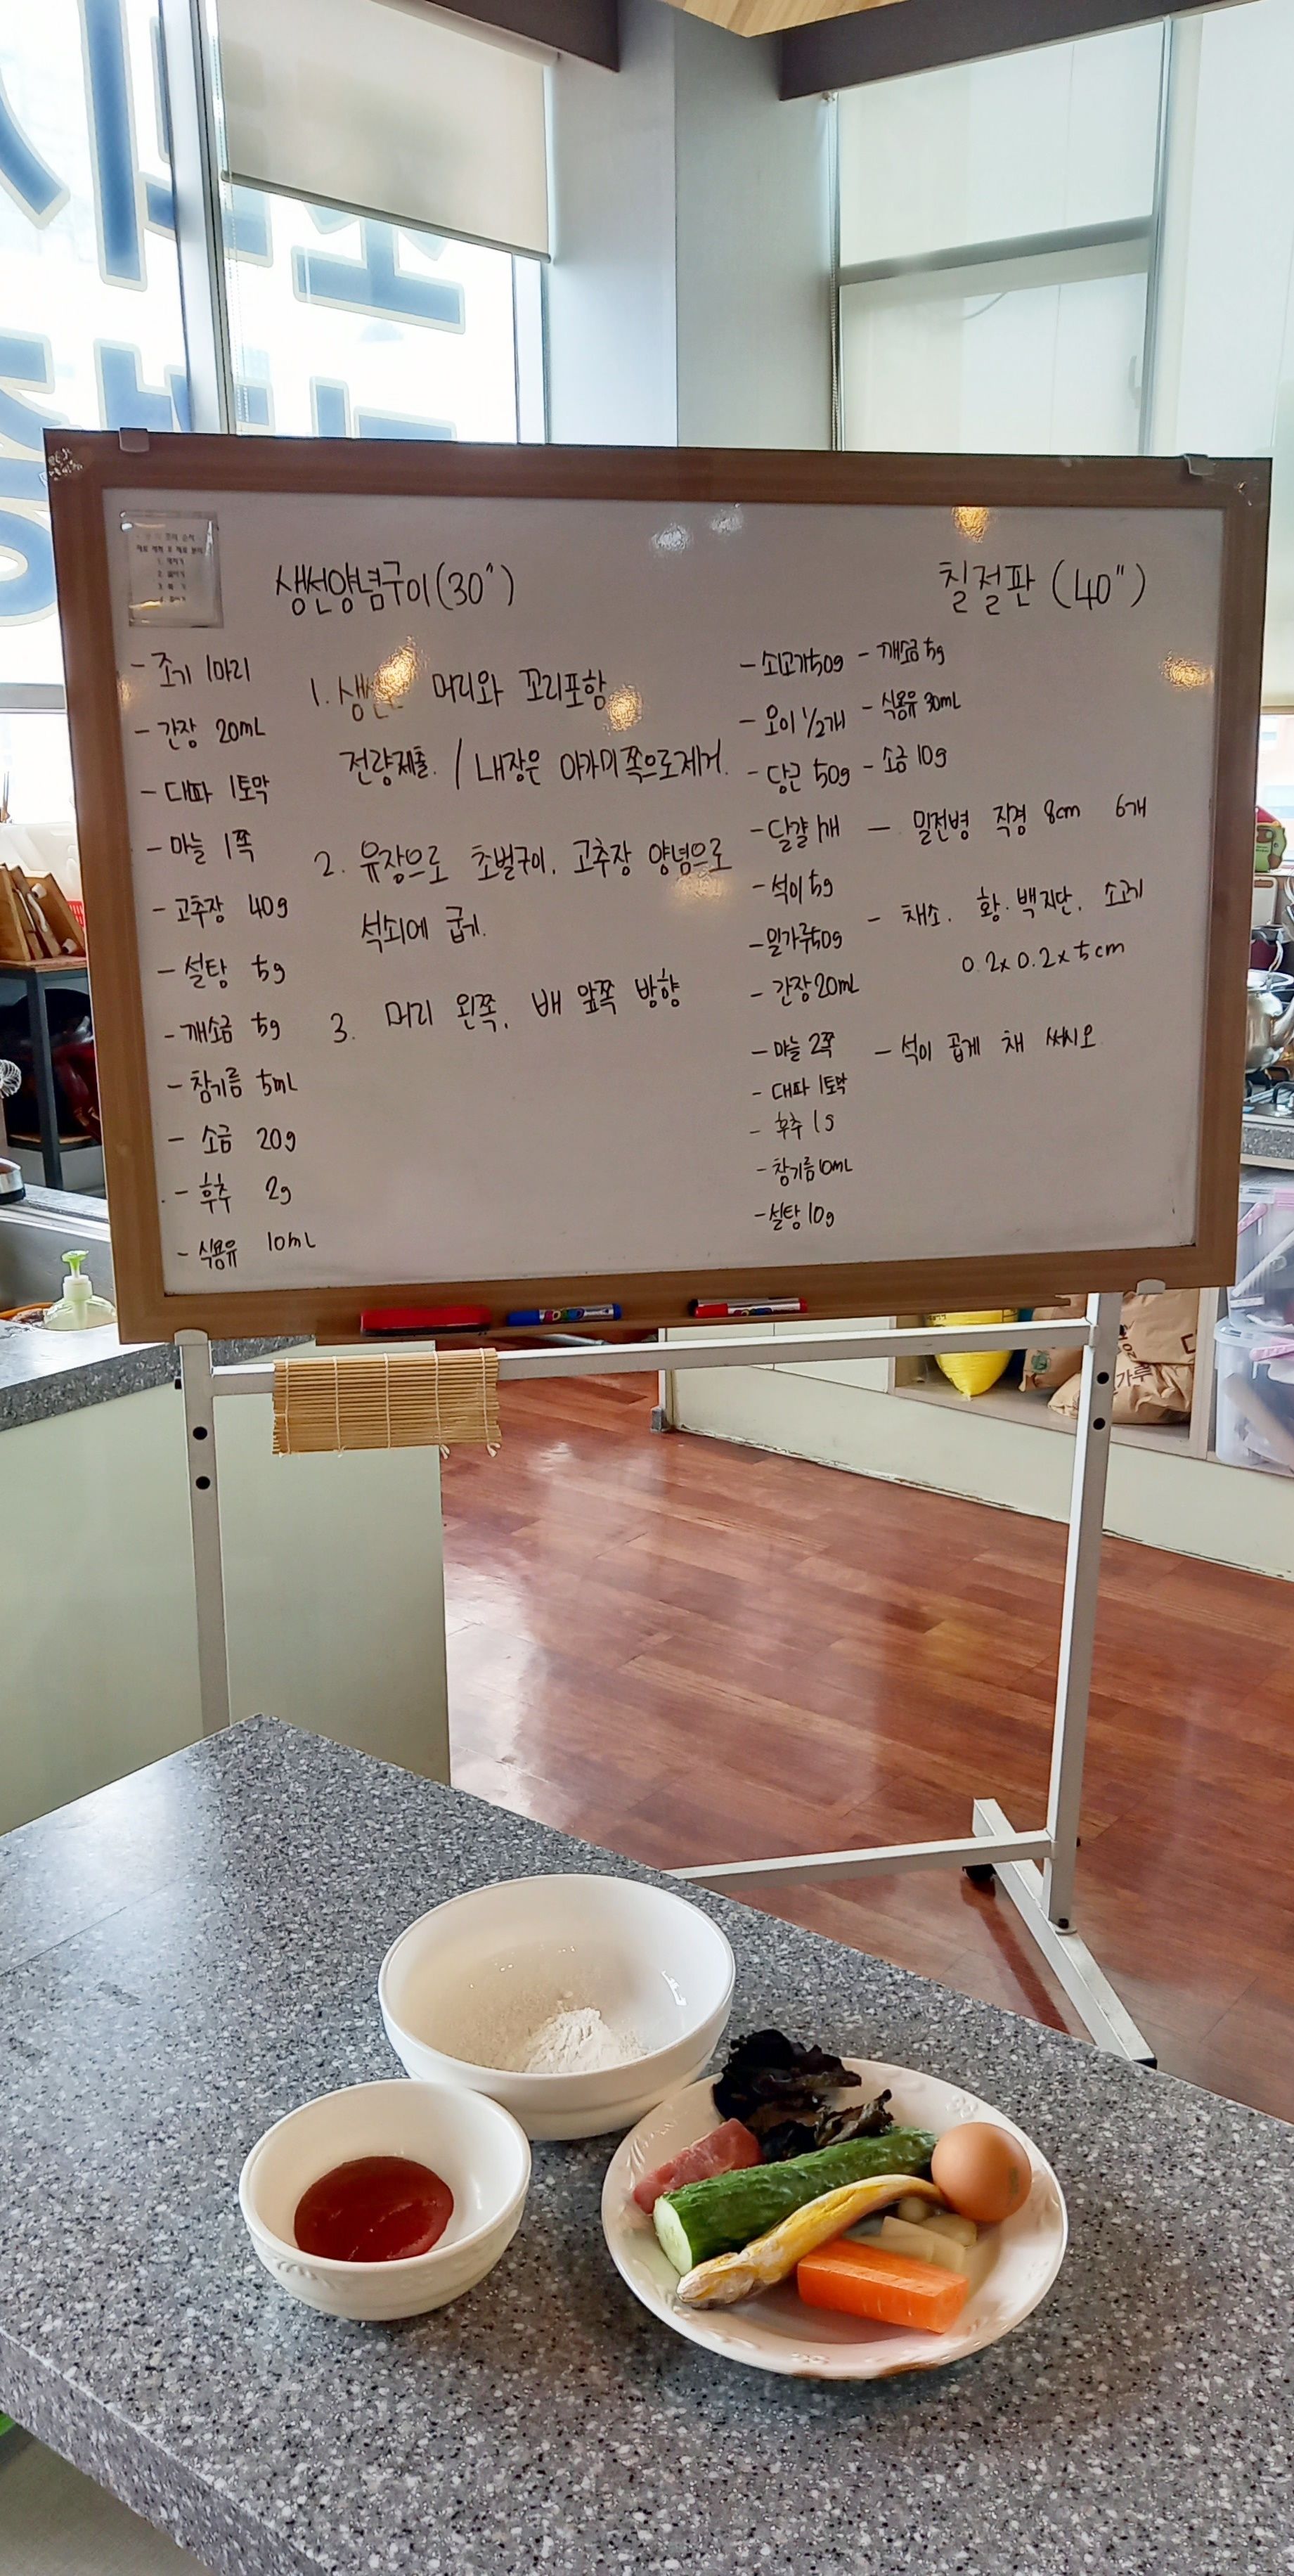 생선양념구이(30")
- 조기 1마리
- 간장 20mL
- 대파 1토막
- 마늘 1쪽
- 고추장 40g
- 설탕 5g
- 깨소금 5g
- 참기름 5mL
- 소금 20g
- 후추 2g
- 식용유 10mL
1. 생선은 머리와 꼬리포함
전량제출. / 내장은 아가미쪽으로제거.
2. 유장으로 초벌구이. 고추장 양념으로
석쇠에 굽기.
3. 머리 왼쪽, 배 앞쪽 방향
칠절판 (40")
- 소고기50g
- 오이 1/2개
- 당근 50g
- 달걀 1개
- 석이 5g
- 밀가루50g
- 간장20mL
- 마늘 2쪽
- 대파 1토막
- 후추 1g
- 참기름10mL
- 설탕 10g
- 깨소금 5g
- 식용유 30mL
- 소금 10g
- 밀전병 직경 8cm 6개
- 채소. 황.백지단. 소고기
0.2x0.2x5cm
- 석이 곱게 채 써시오.
가루